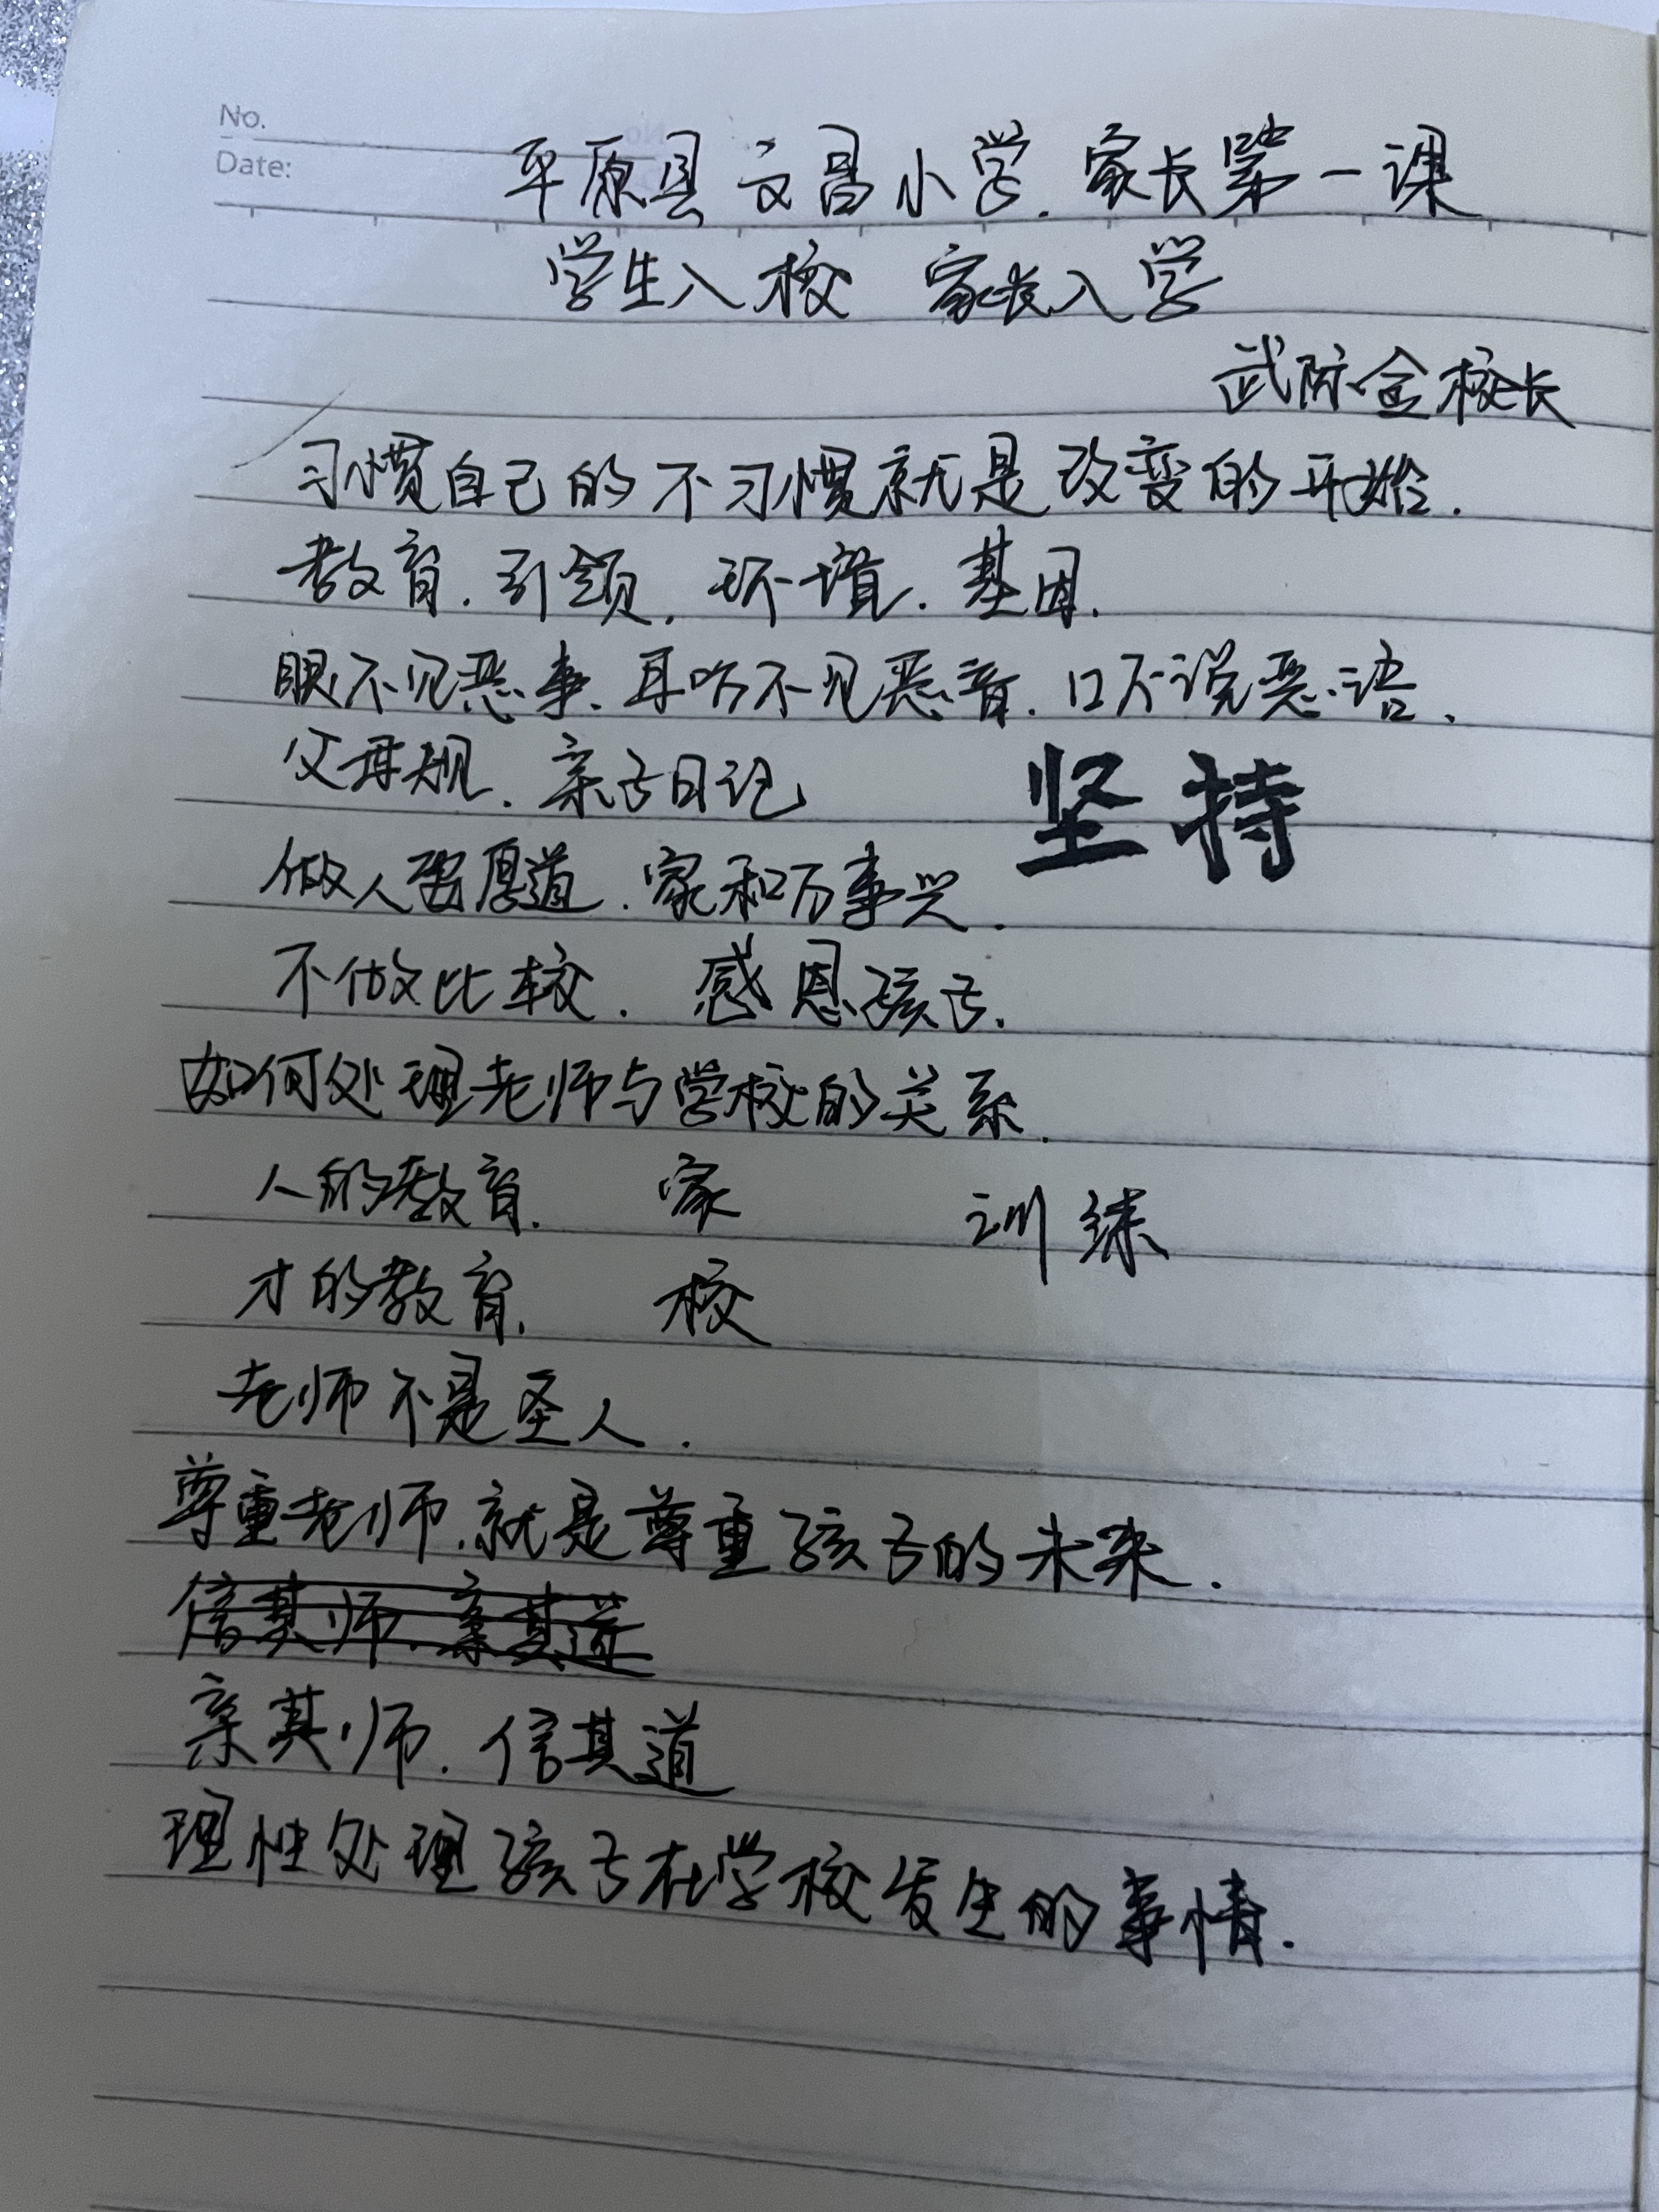 No.
Date:
平原县文昌小学.家长第一课
学生入校 家长入学
武际金校长
习惯自己的不习惯就是改变的开始.
教育.引领.环境.基因.
眼不见恶事、耳听不见恶音.口不说恶语、
父母规.亲子日记
坚持
做人要厚道.家和万事兴.
不做比较.感恩孩子.
如何处理老师与学校的关系.
人的教育. 家 训练
才的教育. 校
老师不是圣人.
尊重老师.就是尊重孩子的未来.
信其师.亲其道
亲其师.信其道
理性处理孩子在学校发生的事情.